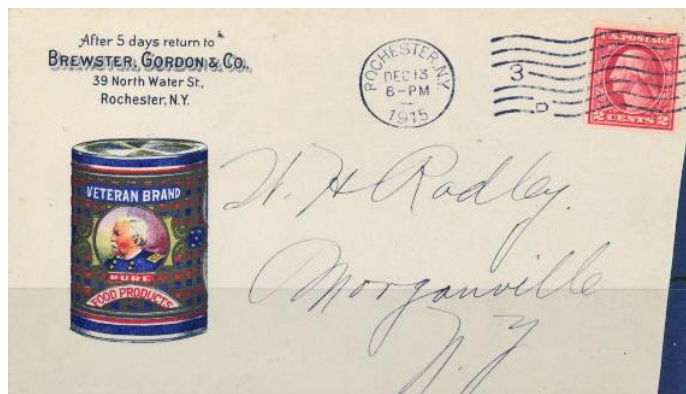 After 5 days return to
BREWSTER, GORDON & CO.,
39 North Water St.,
Rochester, N.Y.
ROCHESTER, N.Y.
DEC 13
8-PM
1915
3
D
U.S. POSTAGE
2 CENTS 2
VETERAN BRAND
PURE
FOOD PRODUCTS
W. H. Radley.
Morganville
N. Y